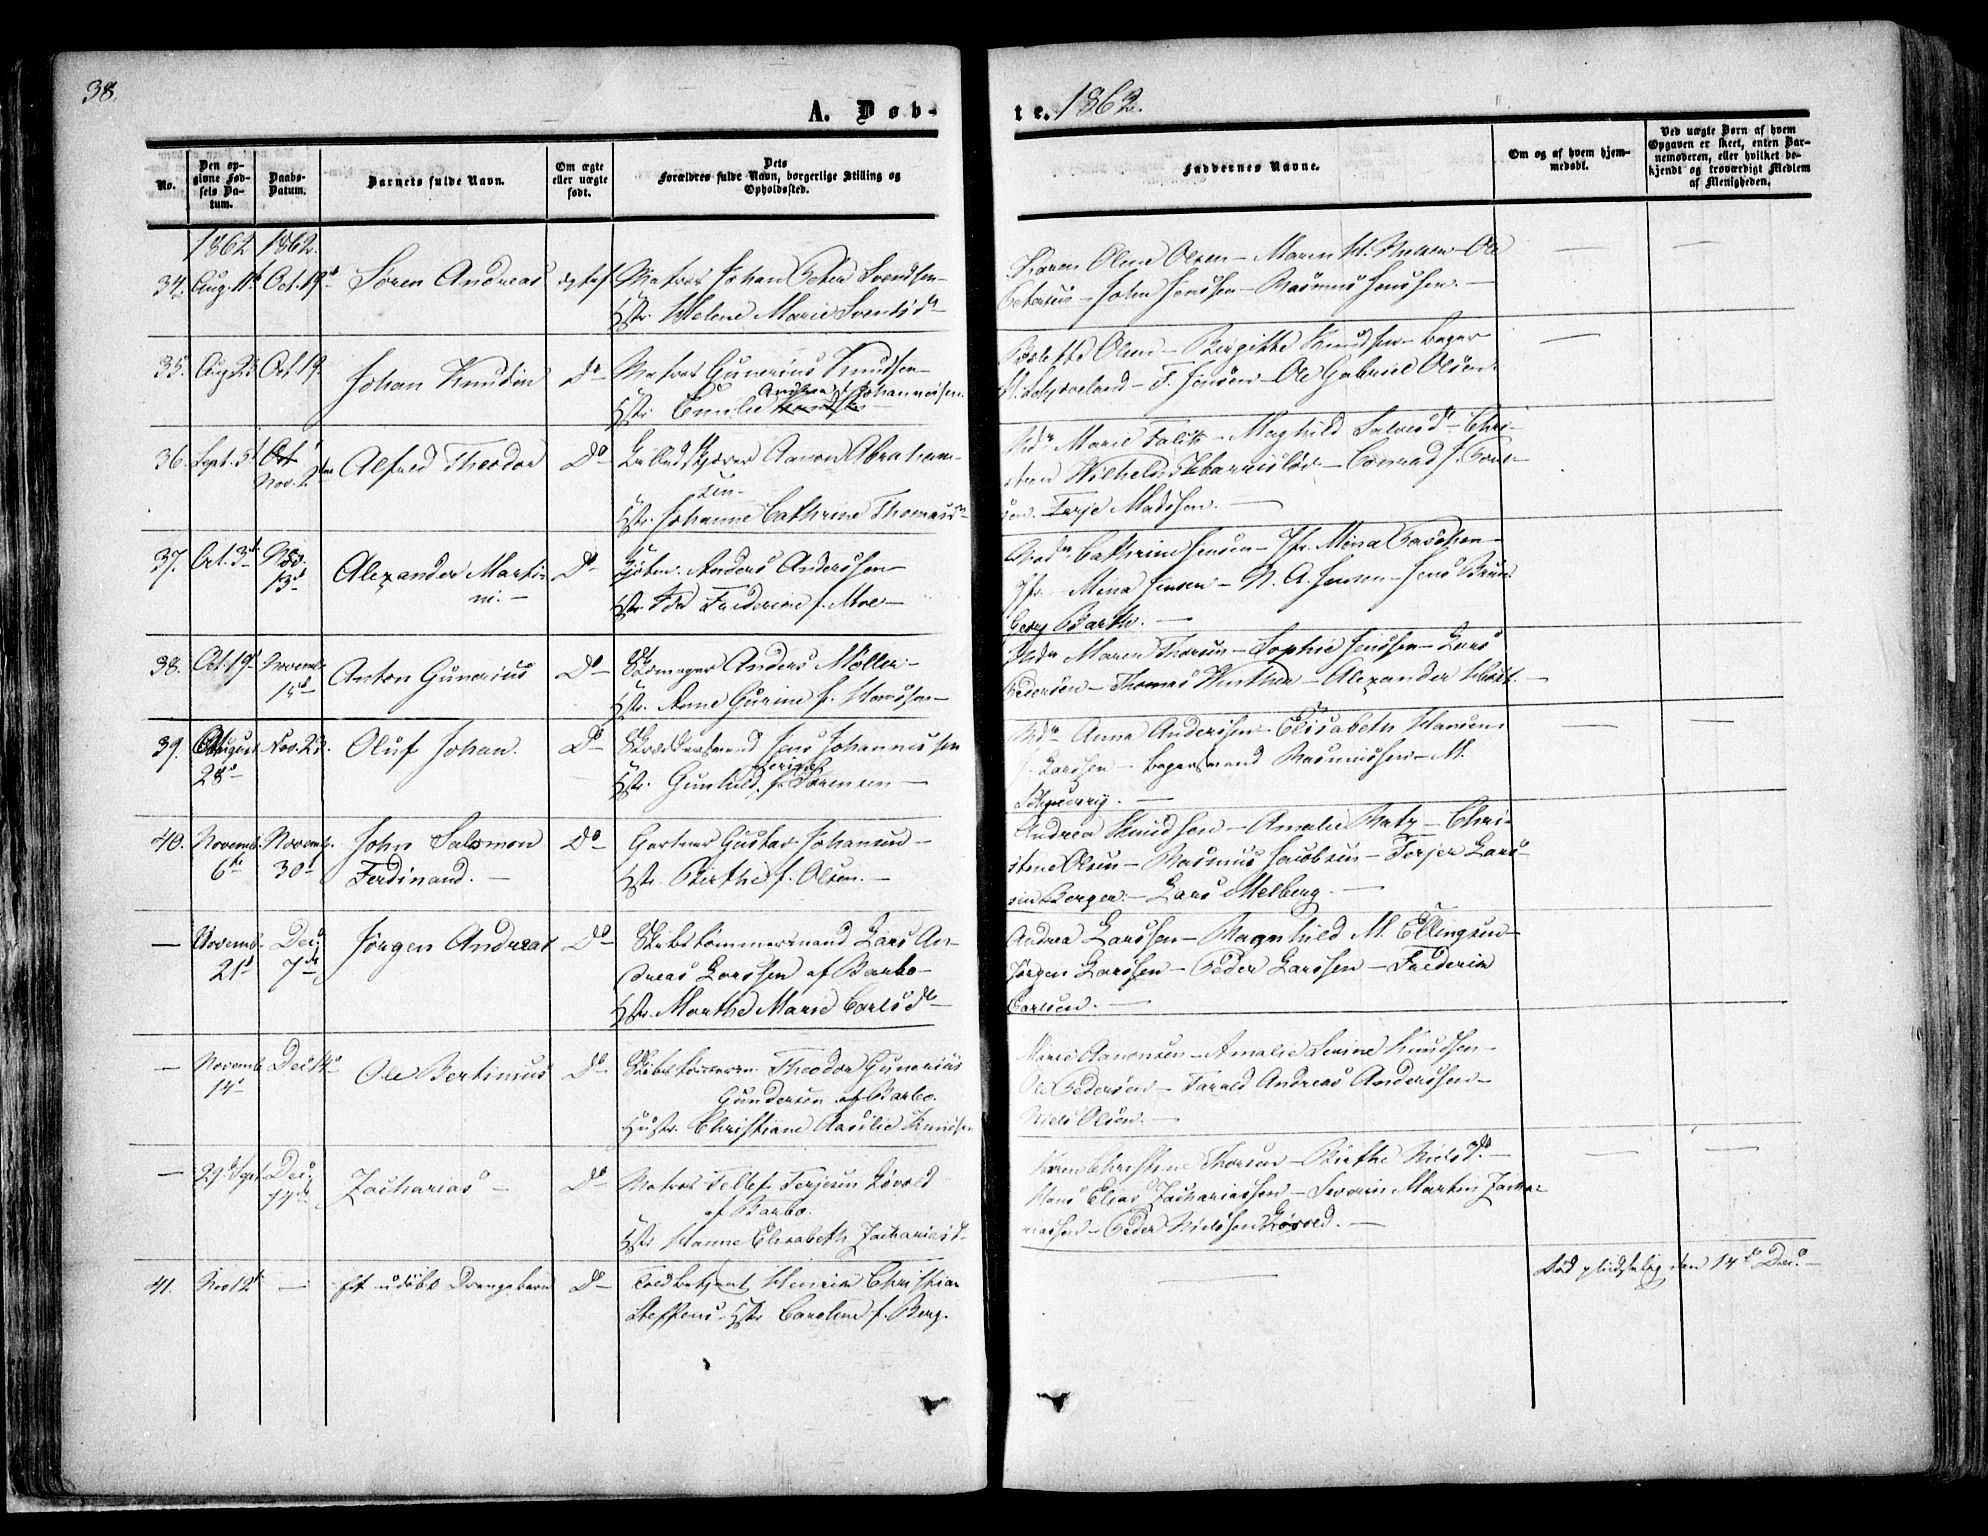 38.
A. Døb-
te. 1862.
No.
Den op-
givne Fød-
sels Da-
tum.
Daabs-
Datum.
Barnets fulde Navn.
Om ægte
eller uægte
født.
Dets
Forældres fulde Navn, borgerlige Stilling og
Opholdssted.
Faddernes Navne.
Om og af hvem hjem-
medøbt.
Ved uægte Børn af hvem
Opgaven er skeet, enten Bar-
nemoderen, eller hvilket be-
kjendt og troværdigt Medlem
af Menigheden.
1862 1862.
34. Aug. 11 Oct. 19 Søren Andreas Matros Johan Peter Svendsen
Hstr. Helene Marie Svendsd
Karen Oline Olsen – Maren M. Nielsen – Ole
John Jenssen – Rasmus Jenssen. –
35. Aug 23 Oct. 19. Johan Knudin Do Matros Gunerius Knudsen
Hstr. Emilie Andrea f. Johannessen.
Olsen – Birgitte Knudsen – Bager
F. Jensen – Ole Gabriel Olsen.
36. Sept. 5 Oct
Nov. 2den Alfred Theodor Do Aanon Abraham-
sen –
Hstr. Johanne Cathrine Thomasd
Md Marie Falk – Maghild – Chri-
Wilhelm – Conrad J.
Terje Madssen. –
37. Oct. 3 Nov.
13 Alexander Marti-
ni. – Do Anders Anderssen –
Hstr. Ida Frederike f. Moe –
Mad Cathrine Jensen – Jfr. Mina
Jfr. Mina Jensen – N. A. Jensen – Jens Brun.
Georg Barth. –
38. Oct. 19 Novemb.
15 Anton Gunerius Do Skomager Anders Møller –
Hstr. Anne Gurine f. Hanssen –
Md Maren Thorsen – Sophie Jenssen – Lars
Pedersen – Thomas Winther – Alexander Holst. –
39. August
28 Nov. 23. Oluf Johan. Do Skræddersvend Jens Johannessen
Hstr. Gunhild f. Sørensen –
Md Anna Anderssen – Elisabeth Hansen
Larssen – Bagersvend Rasmussen – M.
40. Novemb.
6te Novemb.
30 John Salomon
Ferdinand. – Do Gartner Gustav Johansen –
Hstr. Birthe f. Olsen. –
Andrea Knudsen – Amalie Ratz – Chri-
stine Olsen – Rasmus Jacobsen – Terjer Lars-
sen Berger – Lars Melberg. –
– Novemb.
21 Dec.
7 Jørgen Andreas Do Skibstømmermand Lars An-
dreas Larssen af Barbo –
Hstr. Marthe Marie Carlsd –
Andrea Larssen – Ragnhild M. Ellingsen –
Jørgen Larssen – Peder Larssen – Frederik
Carlsen. –
– Novemb
14 Dec 14 Ole Bertinius Do Theodor Gunerius
Gundersen af Barbo.
Hustr. Christiane Aasilie Knudsen
Marie Aanonsen – Amalie Sevine Knudsen –
Ole Pedersen – Tarald Andreas Anderssen –
Niels Olsen. –
– 29 Sept. Dec.
14 Zacharias – Do Matros Tellef Terjesen Løvold
af Barbo.
Hstr. Hanne Elisabeth Zachariasd.
Karen Christine Thorsen – Birthe Nielsd. –
Hans Elias Zachariassen – Severin Martin Zacha-
riassen – Peder Nielssen Løvold. –
41. Nov 12 – Et udøbt Drengebarn Do Toldbetjent Henrik Christian
Steffens. Hstr. Caroline f. Berg.
Død pludselig den 14 Dec. –